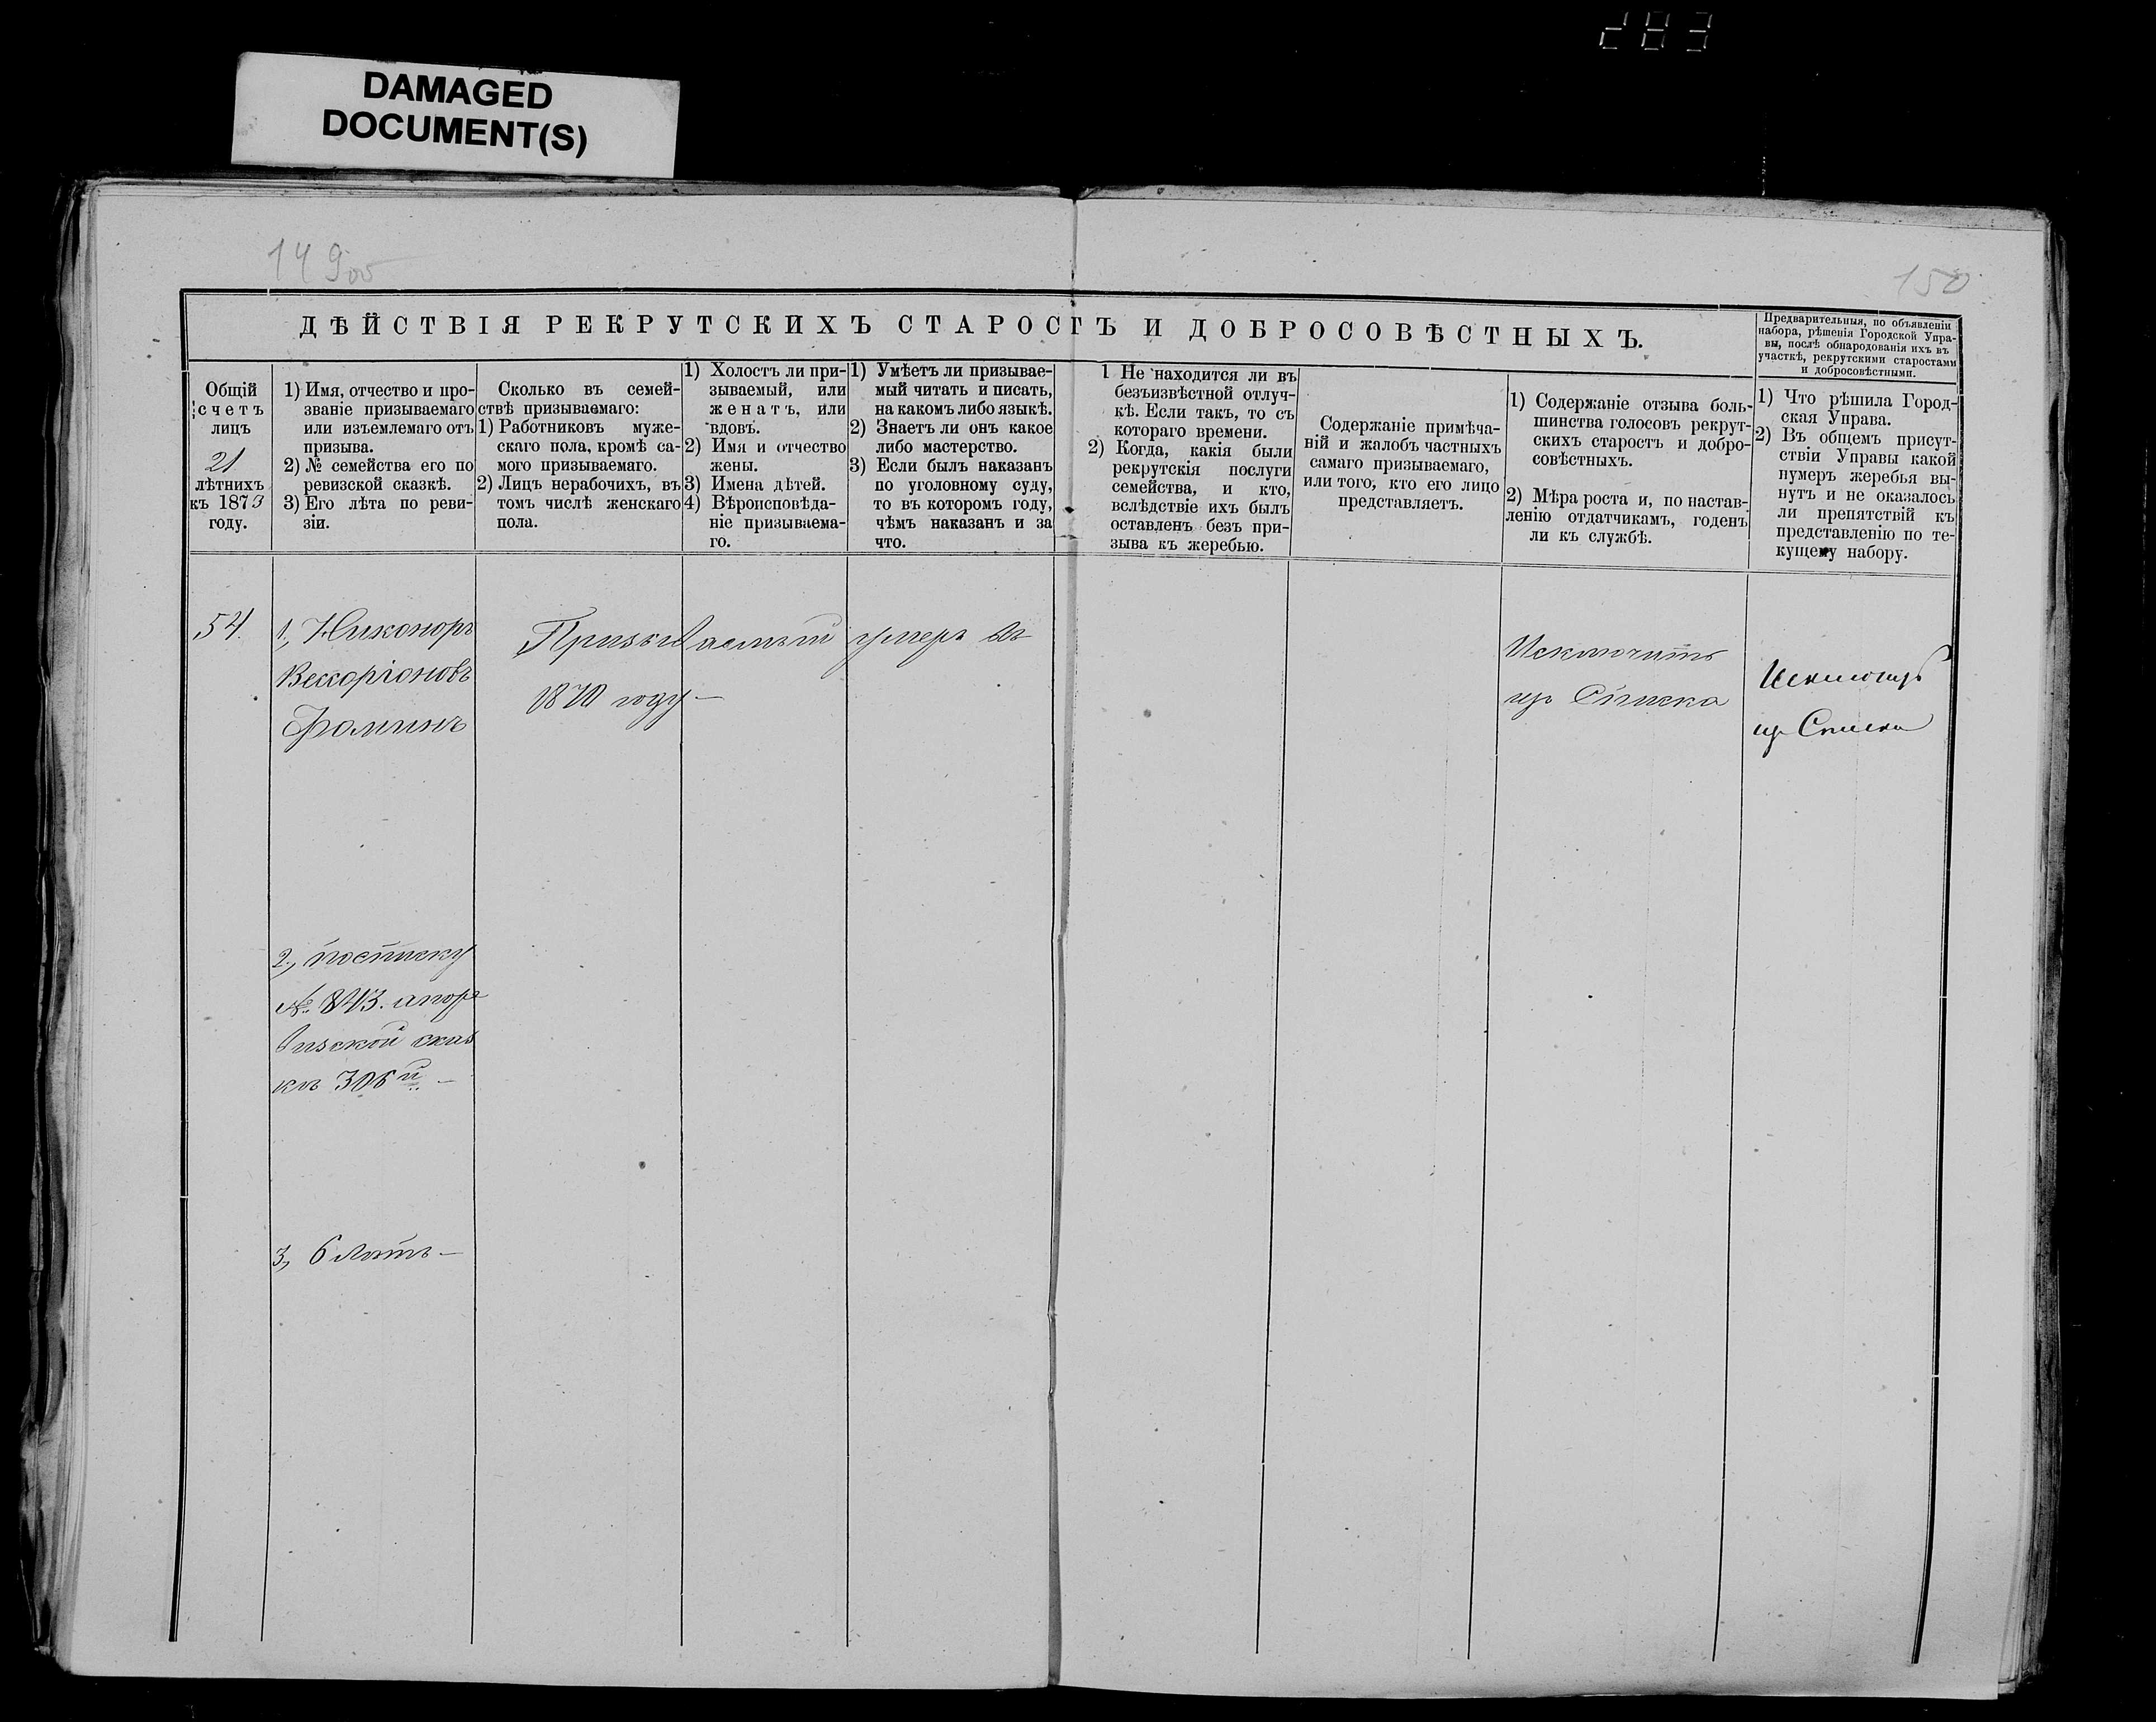 283
DAMAGED
DOCUMENT(S)
149об
150
ДѢЙСТВІЯ РЕКРУТСКИХЪ СТАРОСТЪ И ДОБРОСОВѢСТНЫХЪ.
Предварительныя, по объявленіи
набора, рѣшенія Городской Упра-
вы, послѣ обнародованія ихъ въ
участкѣ, рекрутскими старостами
и добросовѣстными.
Общій
счетъ
лицъ
21
лѣтнихъ
къ 1873
году.
1) Имя, отчество и про-
званіе призываемаго
или изъемлемаго отъ
призыва.
2) № семейства его по
ревизской сказкѣ.
3) Его лѣта по реви-
зіи.
Сколько въ семей-
ствѣ призываемаго:
1) Работниковъ муже-
скаго пола, кромѣ са-
мого призываемаго.
2) Лицъ нерабочихъ, въ
томъ числѣ женскаго
пола.
1) Холостъ ли при-
зываемый, или
женатъ, или
вдовъ.
2) Имя и отчество
жены.
3) Имена дѣтей.
4) Вѣроисповѣда-
ніе призываема-
го.
1) Умѣетъ ли призывае-
мый читать и писать,
на какомъ либо языкѣ.
2) Знаетъ ли онъ какое
либо мастерство.
3) Если былъ наказанъ
по уголовному суду,
то въ которомъ году,
чѣмъ наказанъ и за
что.
1 Не находится ли въ
безъизвѣстной отлуч-
кѣ. Если такъ, то съ
котораго времени.
2) Когда, какія были
рекрутскія послуги
семейства, и кто,
вслѣдствіе ихъ былъ
оставленъ безъ при-
зыва къ жеребью.
Содержаніе примѣча-
ній и жалобъ частныхъ
самаго призываемаго,
или того, кто его лицо
представляетъ.
1) Содержаніе отзыва боль-
шинства голосовъ рекрут-
скихъ старостъ и добро-
совѣстныхъ.
2) Мѣра роста и, по настав-
ленію отдатчикамъ, годенъ
ли къ службѣ.
1) Что рѣшила Город-
ская Управа.
2) Въ общемъ присут-
ствіи Управы какой
нумеръ жеребья вы-
нутъ и не оказалось
ли препятствій къ
представленію по те-
кущему набору.
54.
1, Никоноръ
Вессаріоновъ
Фоминъ
Призываемый умеръ въ
1870 году —
Исключить
изъ Списка
Исключить
изъ Списка
2, посписку
№ 843. апоре
визской сказ
кѣ 306й —
3, 6 лѣтъ —